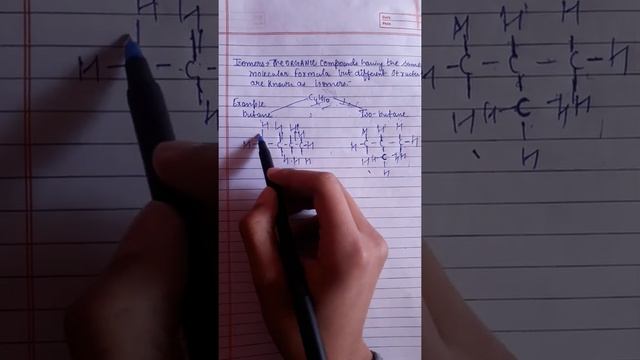 Date
Page
Isomers → The ORGANIC Compounds having the same
molecular formula but different structure
are known as Isomers.
Example C4H10
butane Iso-butane
H H H H H H H
H - C - C - C - C - H H - C - C - C - H
H H H H H - C - H H
H